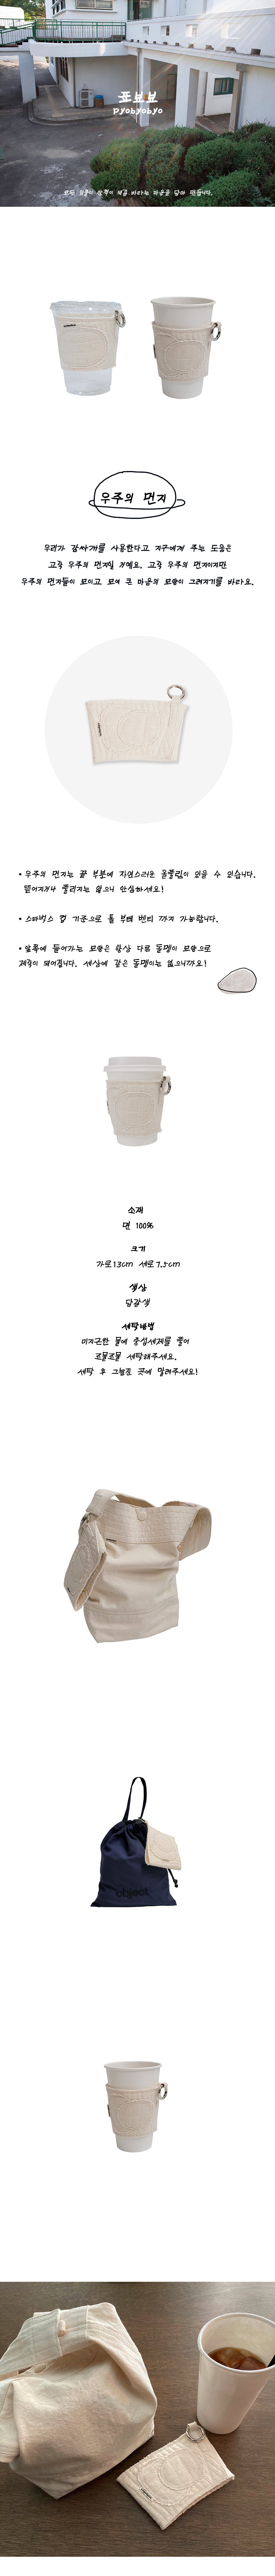 표뵤뵤
pyobyobyo
모든 물품이 부족이 채움 바라는 마음을 담아 만듭니다.
우주의 먼지
우리가 감싸개를 사용한다고 지구에게 주는 도움은
고작 우주의 먼지일 거예요. 고작 우주의 먼지이지만
우주의 먼지들이 모이고 모여 큰 마음의 모양이 그려지기를 바라요.
• 우주의 먼지는 끝 부분에 자연스러운 올풀림이 있을 수 있습니다.
뜯어지거나 풀리지는 않으니 안심하세요!
• 스타벅스 컵 기준으로 톨 부터 벤티 까지 가능합니다.
• 앞쪽에 들어가는 모양은 항상 다른 돌멩이 모양으로
제작이 되어집니다. 세상에 같은 돌멩이는 없으니까요!
소재
면 100%
크기
가로13cm 세로7.5cm
색상
담광색
세탁방법
미지근한 물에 중성세제를 풀어
조물조물 세탁해주세요.
세탁 후 그늘진 곳에 말려주세요!
object